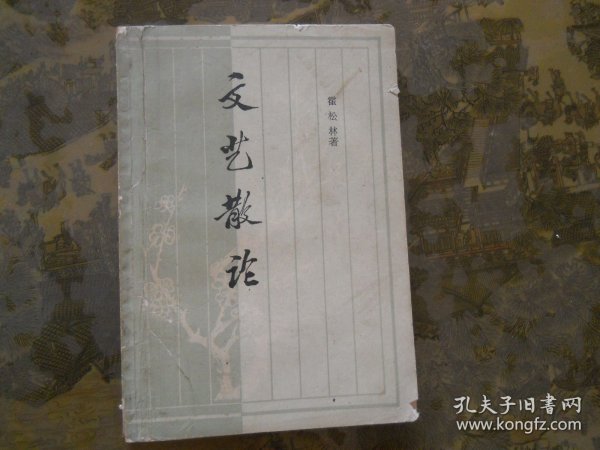 文艺散论
霍松林著
孔夫子旧书网
www.kongfz.com